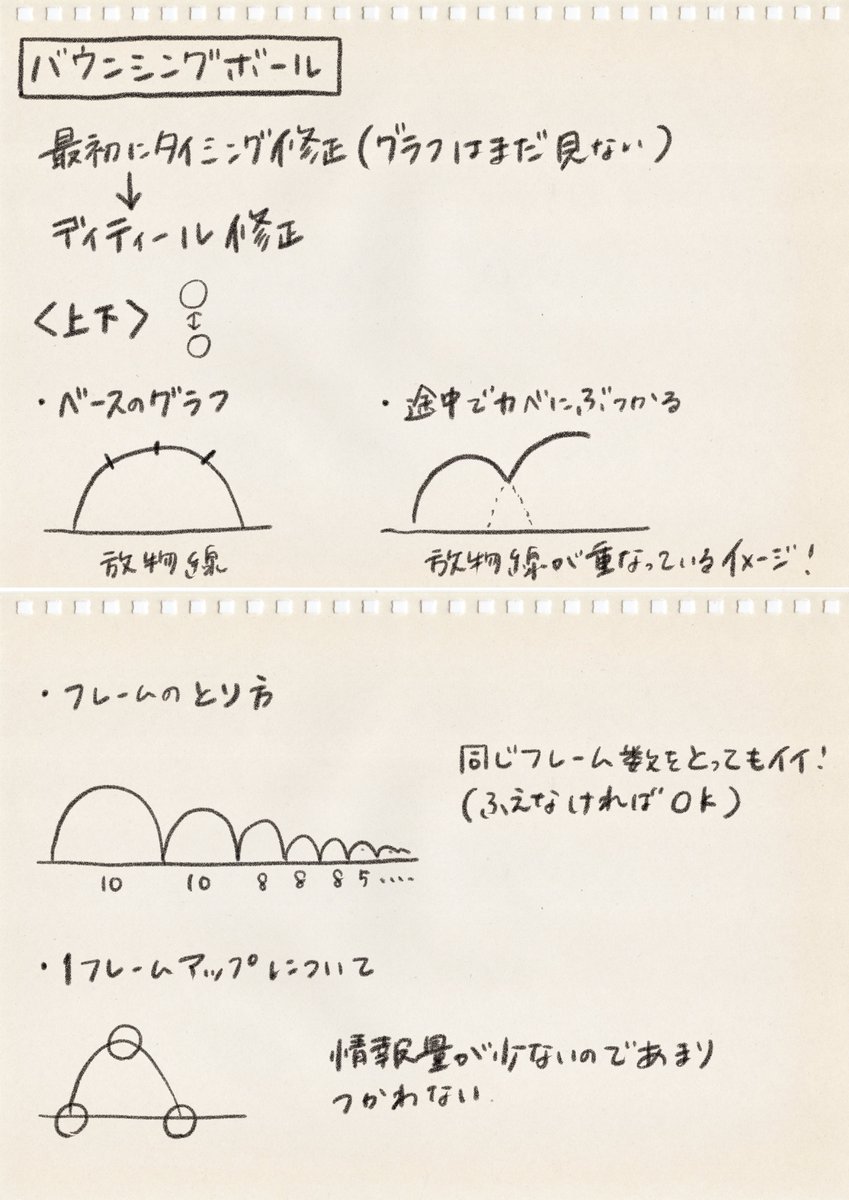 バウンシングボール
最初にタイミング修正(グラフはまだ見ない)
↓
ディティール修正
<上下>
・ベースのグラフ
放物線
・途中でカベにぶつかる
放物線が重なっているイメージ!
・フレームのとり方
10 10 8 8 8 5 ....
同じフレーム数をとってもイイ!
(ふえなければOK)
・1フレームアップについて
情報量が少ないのであまり
つかわない.